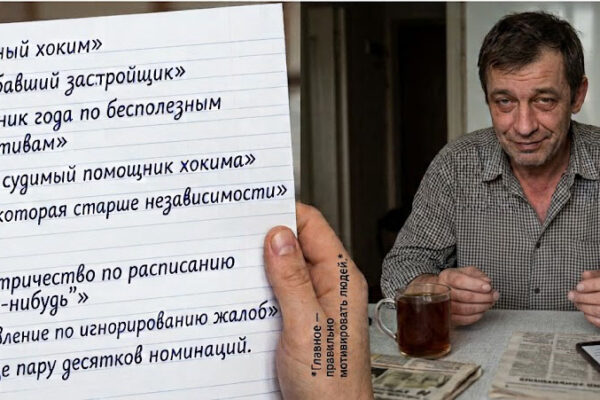 ный хоким»
бавший застройщик»
ник года по бесполезным
тивам»
судимый помощник хокима»
которая старше независимости»
тричество по расписанию
-нибудь”»
вление по игнорированию жалоб»
це пару десятков номинаций.
*Главное —
правильно
мотивировать людей.*